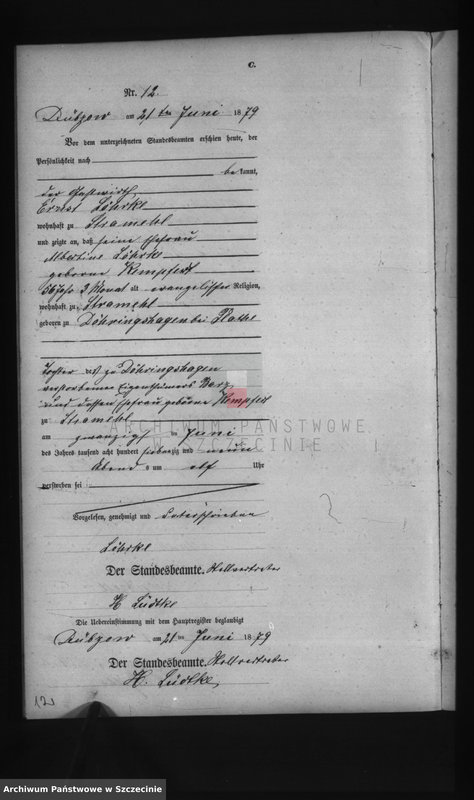 C.
Nr. 12.
Rübzow am 21 ten Juni 1879
Vor dem unterzeichneten Standesbeamten erschien heute, der
Persönlichkeit nach
be kannt,
der Gastwirth
Ernst Löhrke
wohnhaft zu Stramehl
und zeigte an, daß seine Ehefrau
Albertine Löhrke
geborne Kempfert
56 Jahr 3 Monat alt evangelischer Religion,
wohnhaft zu Stramehl
geboren zu Döhringshagen bei Plathe
Tochter des zu Döhringshagen
verstorbenen Eigenthümers
und dessen Ehefrau geborne Kempfert
zu Stramehl
am zwanzigsten Juni
des Jahres tausend acht hundert siebenzig und neun
Abend s um elf Uhr
verstorben sei
Vorgelesen, genehmigt und unterschrieben
Löhrke
Der Standesbeamte. Stellvertreter
H Lüdtke
Die Uebereinstimmung mit dem Hauptregister beglaubigt
Rübzow am 21 ten Juni 1879
Der Standesbeamte. Stellvertreter
H. Lüdtke
12
ARCHIWUM PAŃSTWOWE
W SZCZECINIE
Archiwum Państwowe w Szczecinie